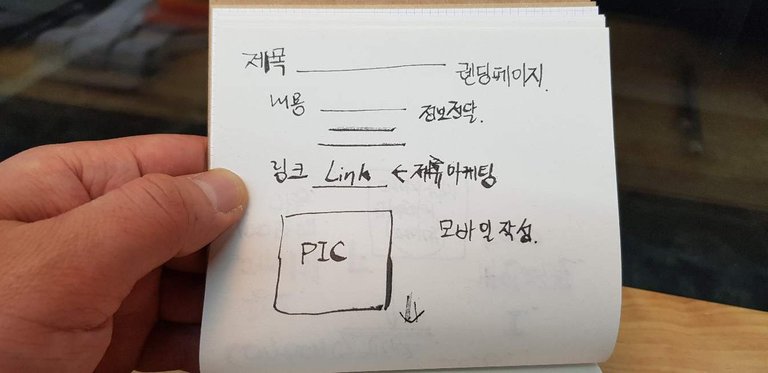 제목 랜딩페이지.
내용 정보전달.
링크 Link ← 제휴마케팅
PIC 모바일작성.